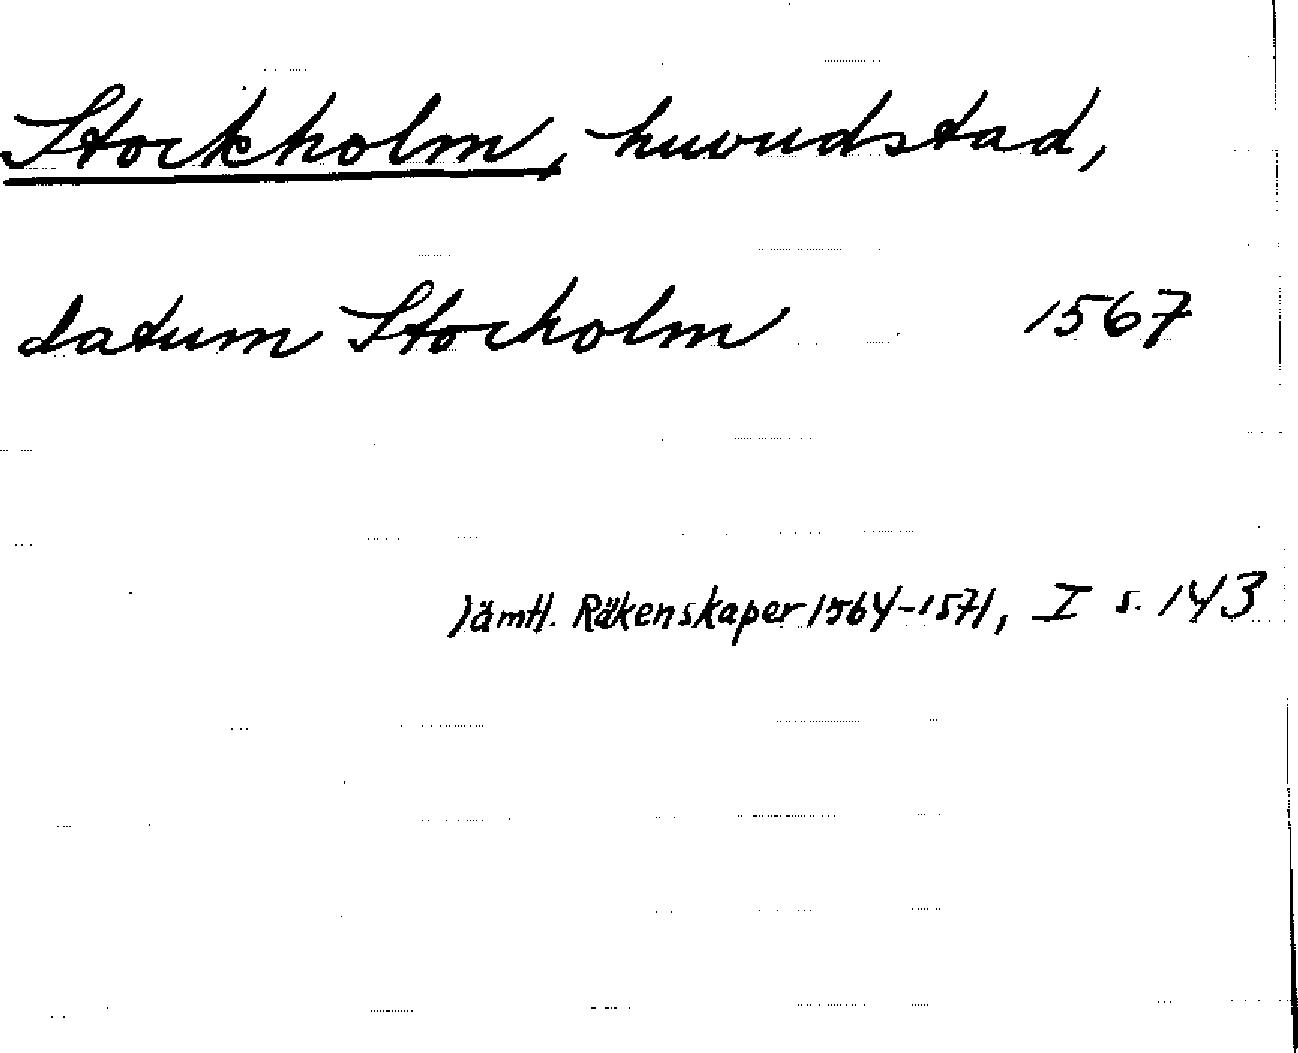 Stockholm, huvudstad,
datum Stocholm 1567
Jämtl. Räkenskaper 1564-1571, I s. 143